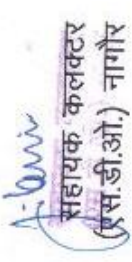 सहायक कलक्टर
(एस.डी.ओ.) नागौर